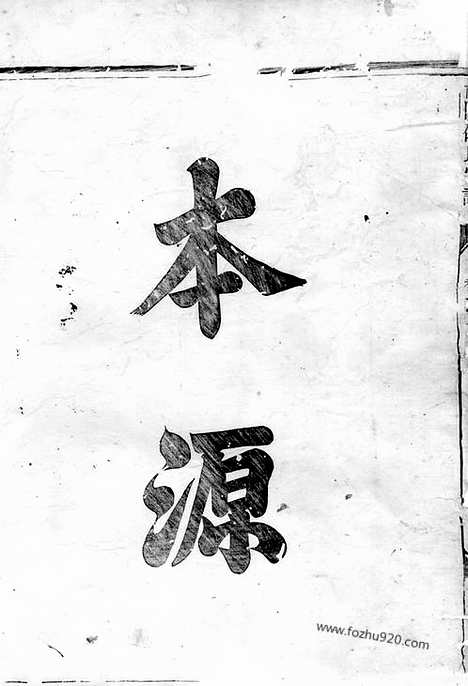 本
源
www.fozhu920.com